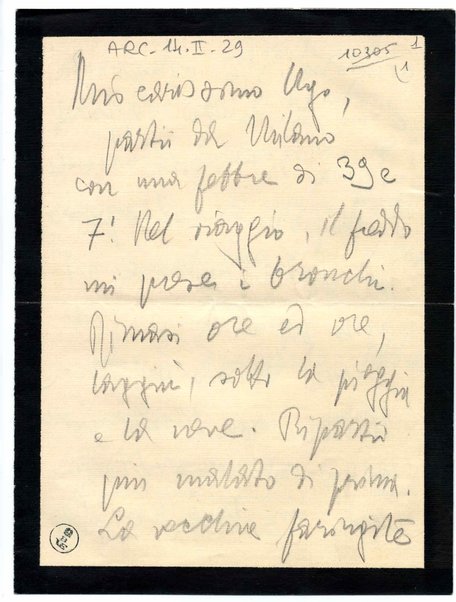 ARC-14.II.29
10305 1
1
Mio carissimo Ugo,
partii da Milano
con una febbre di 39 e
7! Nel viaggio, il freddo
mi prese i bronchi.
Rimasi ore ed ore,
laggiù, sotto la pioggia
e la neve. Ripartii
più malato di prima.
La vecchia faringite